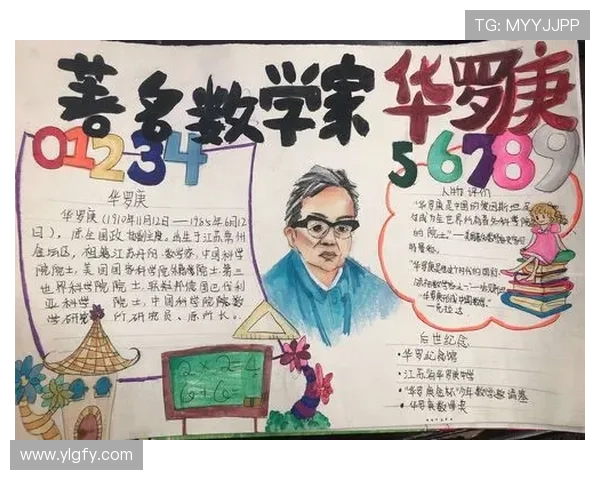 TG: MYYJJPP
著名数学家 华罗庚
01234
56789
华罗庚
华罗庚(1910年11月12日—1985年6月12
日),
出生于江苏常州
金坛区,祖籍江苏丹阳,数学家,中国科学
院院士,美国国家科学院外籍院士,第三
世界科学院院士,联邦德国巴伐利
亚科学院院士,中国科学院数
学研究所研究员、原所长。
人物评价
"华罗庚是中国的爱因斯坦,足
够成为全世界所有著名科学院
的院士"
后世纪念
·华罗庚纪念馆
·江苏省华罗庚中学
·"华罗庚金杯"少年数学邀请赛
·华罗庚数学奖
2×2=4
6+6=
www.ylgfy.com